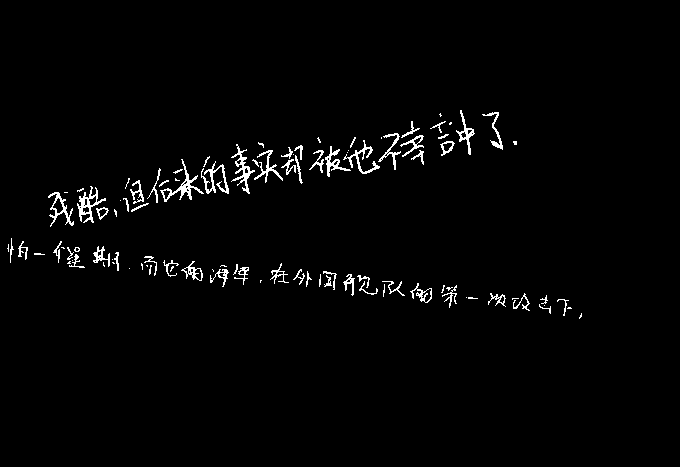 残酷,但后来的事实却被他不幸言中了.
怕一个星期.而它的海军.在外国舰队的第一次攻击下,